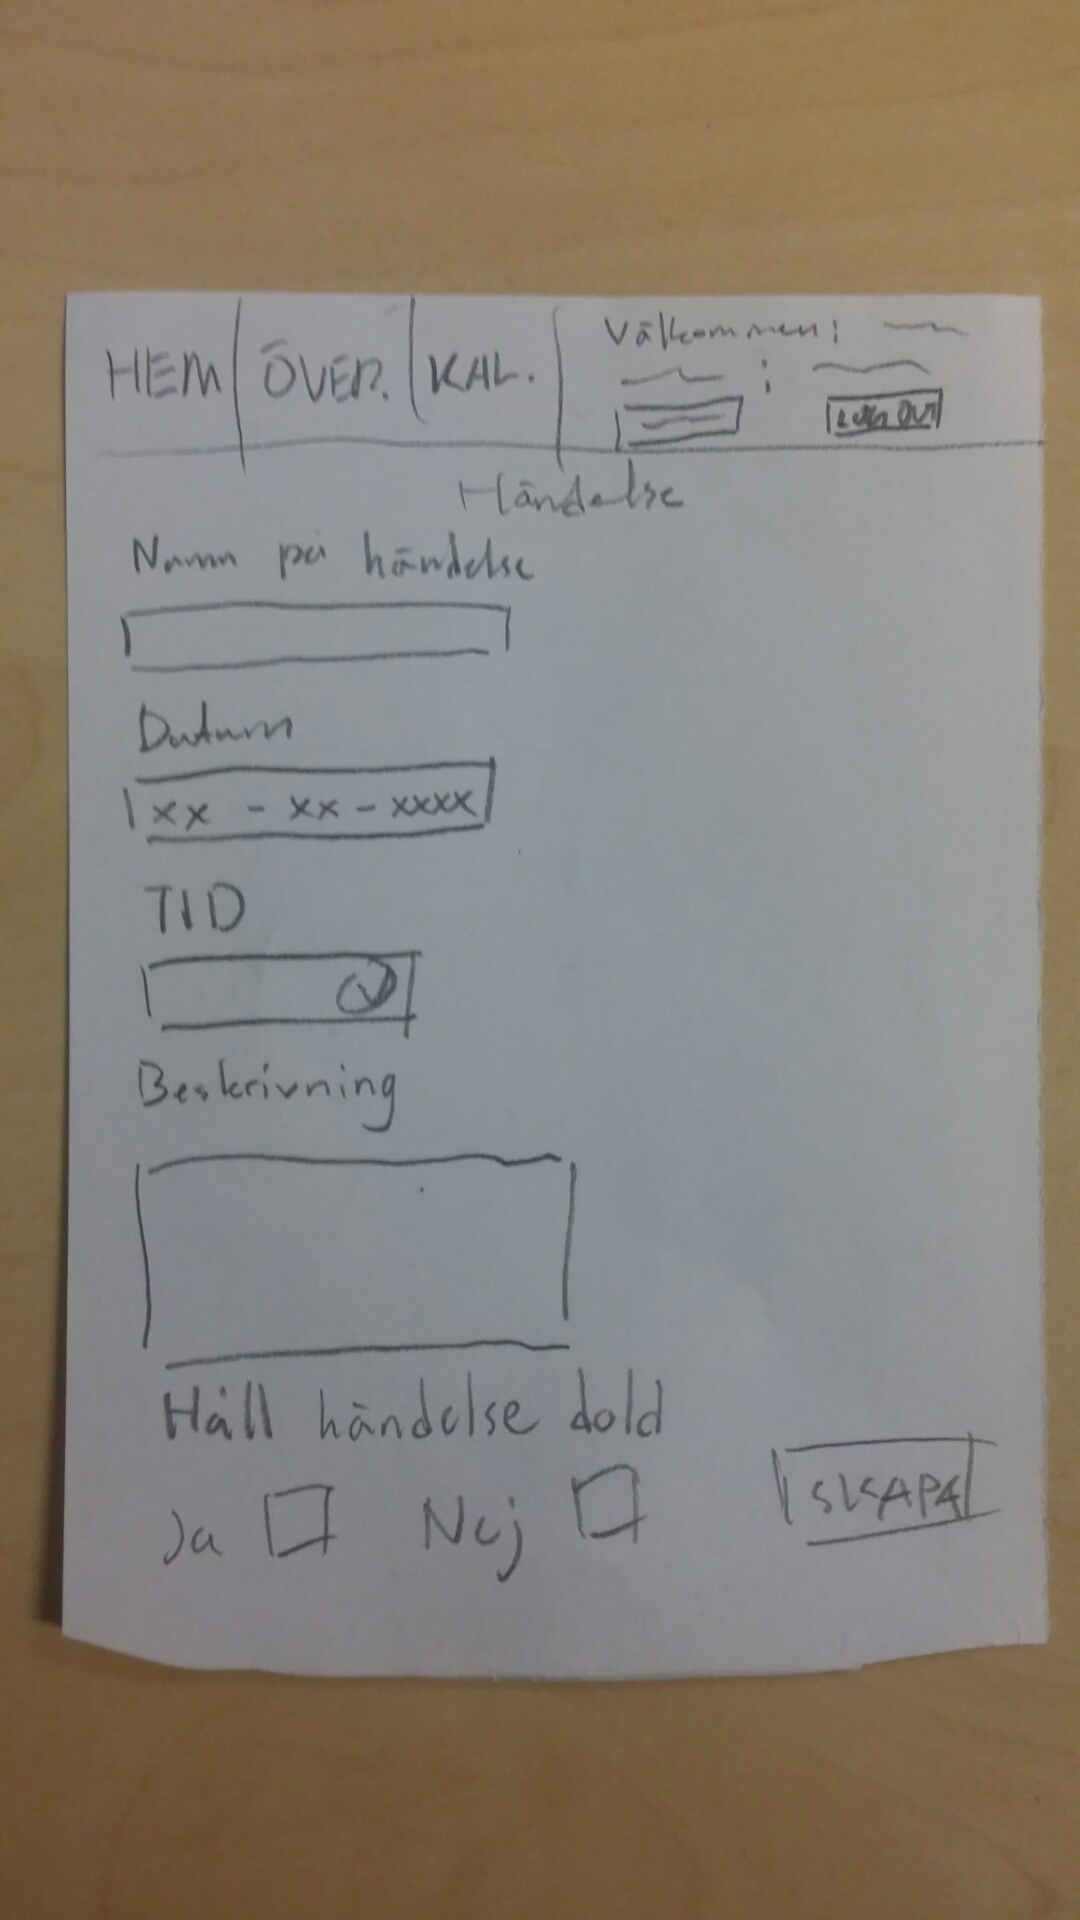 HEM ÖVER. KAL.
Välkommen:
LOG OUT
Händelse
Namn på händelse
Datum
xx - xx - xxxx
TID
Beskrivning
Håll händelse dold
Ja Nej
SKAPA